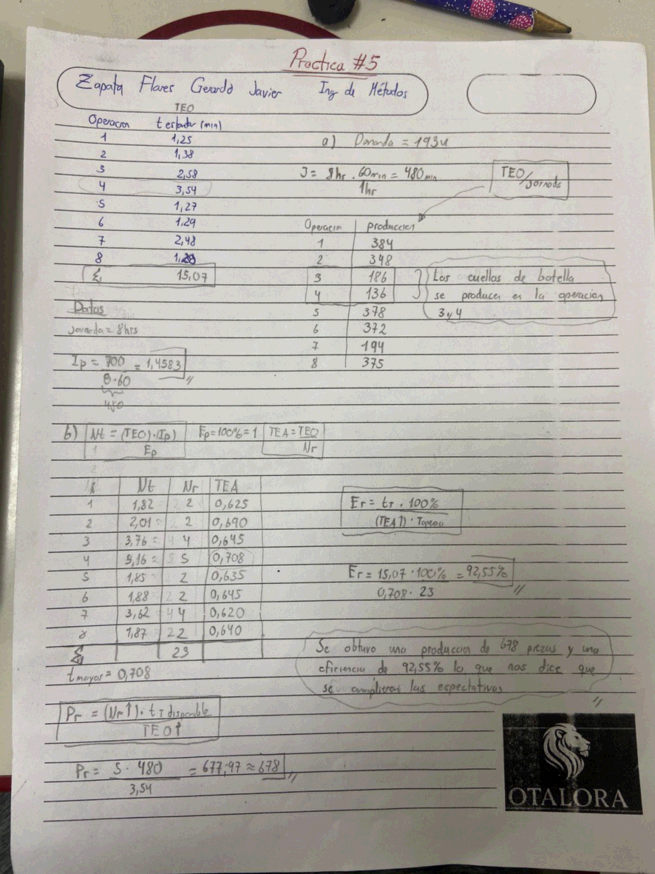 Practica #5
Zapata Flores Gerardo Javier Ing de Métodos
TEO
Operacion t estandar (min)
1 1,25
2 1,38
3 2,58
4 3,54
5 1,27
6 1.29
7 2,48
8 1,28
Σ 15,07
Datos
Jornada = 8hrs
Ip = 700 = 1,4583 //
8·60
480
a) Demanda = 193u
J = 8hr . 60min = 480 min
1hr
TEO/Jornada
Operacion produccion
1 384
2 348
3 186
4 136
5 378
6 372
7 194
8 375
Los cuellos de botella
se producen en la operacion
3 y 4
b) Nt = (TEO)·(Ip) Ep=100%=1 TEA = TEO
Ep Nr
Nt Nr TEA
1 1,82 2 0,625
2 2,01 2 0,690
3 3,76 4 0,645
4 5,16 5 0,708
5 1,85 2 0,635
6 1,88 2 0,645
7 3,62 4 0,620
8 1,87 2 0,640
Σ 23
t mayor = 0,708
Er = tT · 100%
Er = 15,07 ·100% = 92,55% //
0,708 · 23
Se obtuvo una produccion de 678 piezas y una
eficiencia de 92,55% lo que nos dice que
se cumplieron las expectativas //
Pr = (Nr↑) · tT disponible
TEO↑
Pr = 5 · 480 = 677,97 ≈ 678 //
3,54
OTALORA